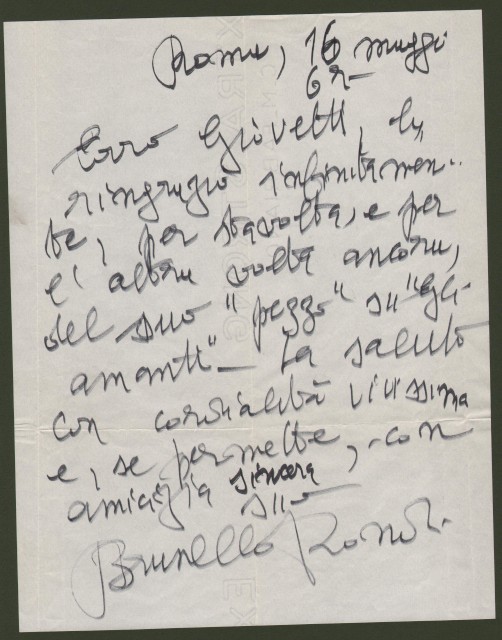 Roma, 16 maggio
62-
Caro Giovetti, la
ringrazio infinitamen-
te, per stavolta, e per
l'altra volta ancora,
del suo "pezzo" su "Gli
amanti" - La saluto
con cordialità vivissima
e, se permette, con
amicizia sincera
suo
Brunello Rondi